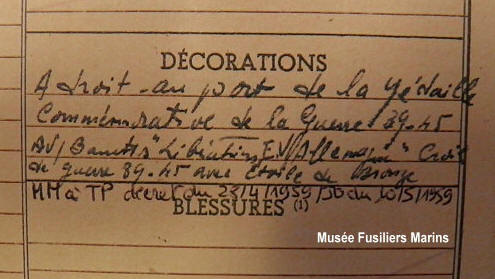 DÉCORATIONS
A droit au port de la Médaille
Commémorative de la Guerre 39-45
AV/ Barrettes "Libération EV/ Allemagne" Croix
de guerre 39.45 avec Etoile de Bronze
MM à TP décret du 23/4/1959 JO du 10/5/1959
BLESSURES (1)
Musée Fusiliers Marins